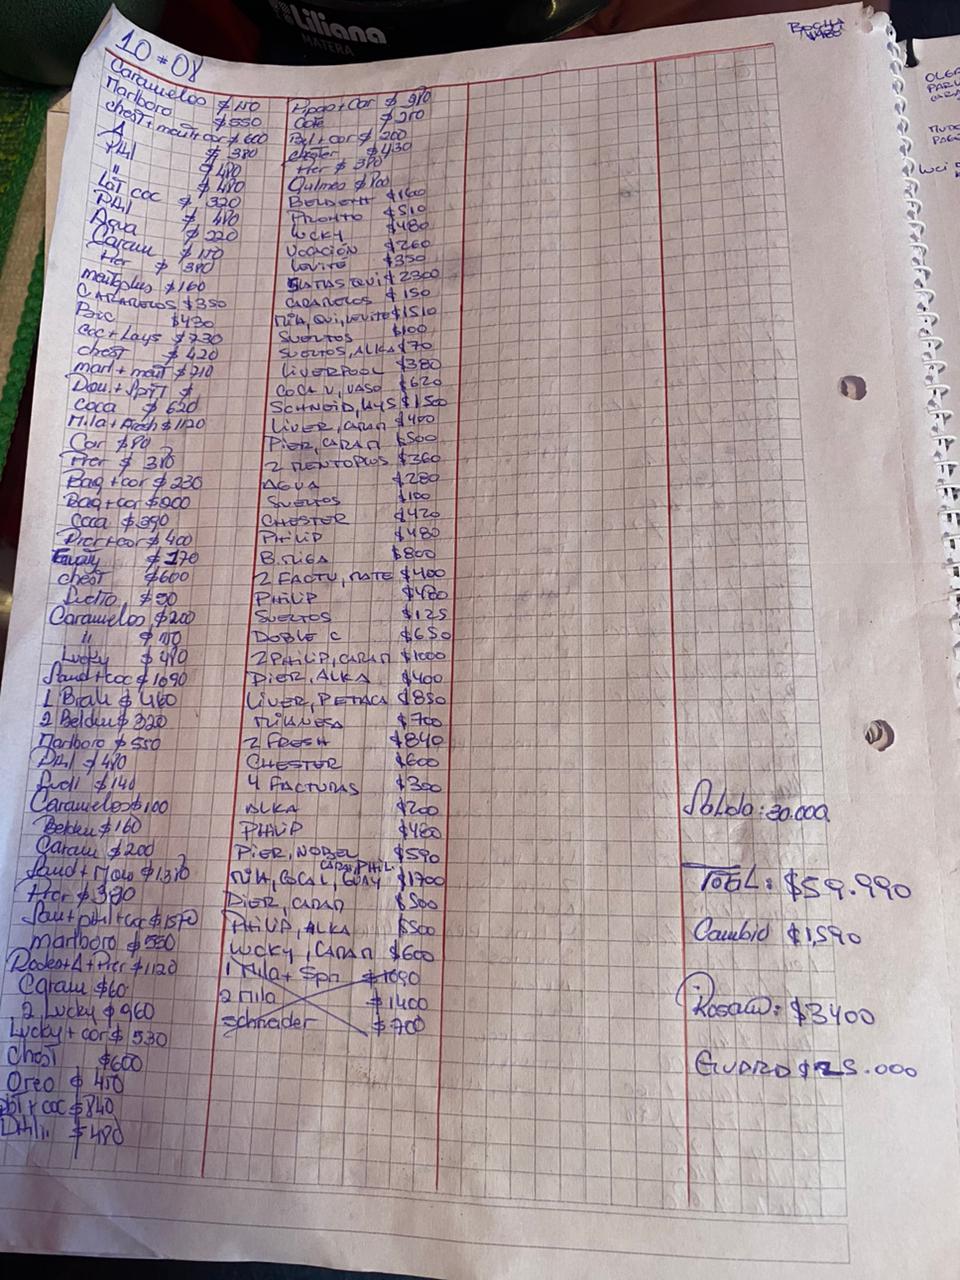 Liliana
MATERA
10 * 08
Caramelos $ 150
Marlboro $550
chest + ment + cor $ 600
A $ 380
Phil $ 480
" $ 480
Lat coc $ 320
Phil $ 480
Agua $ 220
Caram $ 150
Pier $ 380
mentoplus $160
CARAMELOS $350
Baic $430
Coc + Lays $730
chest $ 420
marl + ment $710
Dou. + Sprit $
Coca $ 620
Mila + Arch $ 1120
Car $80
Pier $ 380
Bag + cor $ 230
Bag + cor $200
Coca $ 390
Pier + cor $ 400
Guay $ 170
chest $600
Suelto $ 90
Caramelos $200
" $ 110
Lucky $ 480
Sand + coc $ 1090
1 Brah $ 460
2 Belden $ 320
Marlboro $ 550
Phil $ 480
Suelt $ 140
Caramelos $100
Belden $ 160
Caram $ 200
Sand +
Pier $ 380
San + phil + cor $1570
marlboro $ 550
Rodeo + A + Pier $ 1120
Caram $60
2 Lucky $ 960
Lucky + cor $ 530
Chest $600
Oreo $ 450
+ coc $ 840
Phil. $ 480
+ Car $ 910
Café $ 210
+ cor $ 200
Chester $430
Pier $ 380
Quilmes $ 800
BELDENT $160
PRONTO $510
LUCKY $480
UCACIÓN $260
LEVITÉ $350
QUI $2300
CARAMELOS $ 150
MILA, QUI, LEVITE $1510
SUELTOS $100
SUELTOS, ALKA $70
LIVERPOOL $380
COCA V, VASO $620
SCHNEID, LAYS $1500
LIVER, CARAM $400
PIER, CARAM $500
2 MENTOPLUS $360
AGUA $280
SUELTOS $100
CHESTER $420
PHILIP $480
B.MIGA $800
2 FACTU, MATE $400
PHILIP $480
SUELTOS $125
DOBLE C $650
2 PHILIP, CARAM $1000
PIER, ALKA $400
LIVER, PETACA $850
MILANESA $700
2 FRESH $840
CHESTER $600
4 FACTURAS $300
ALKA $200
PHILIP $480
PIER, NOBEL $590
CARAM, PHILI
MILA, COCA L, GUAY $1700
PIER, CARAM $500
PHILIP, ALKA $500
LUCKY, CARAM $600
1 Mila + Spri $1090
2 Mila $1400
Schneider $ 700
Salida: 30.000
TOTAL: $59.990
Cambio $1,590
Rosario: $3400
GUARDO $25.000